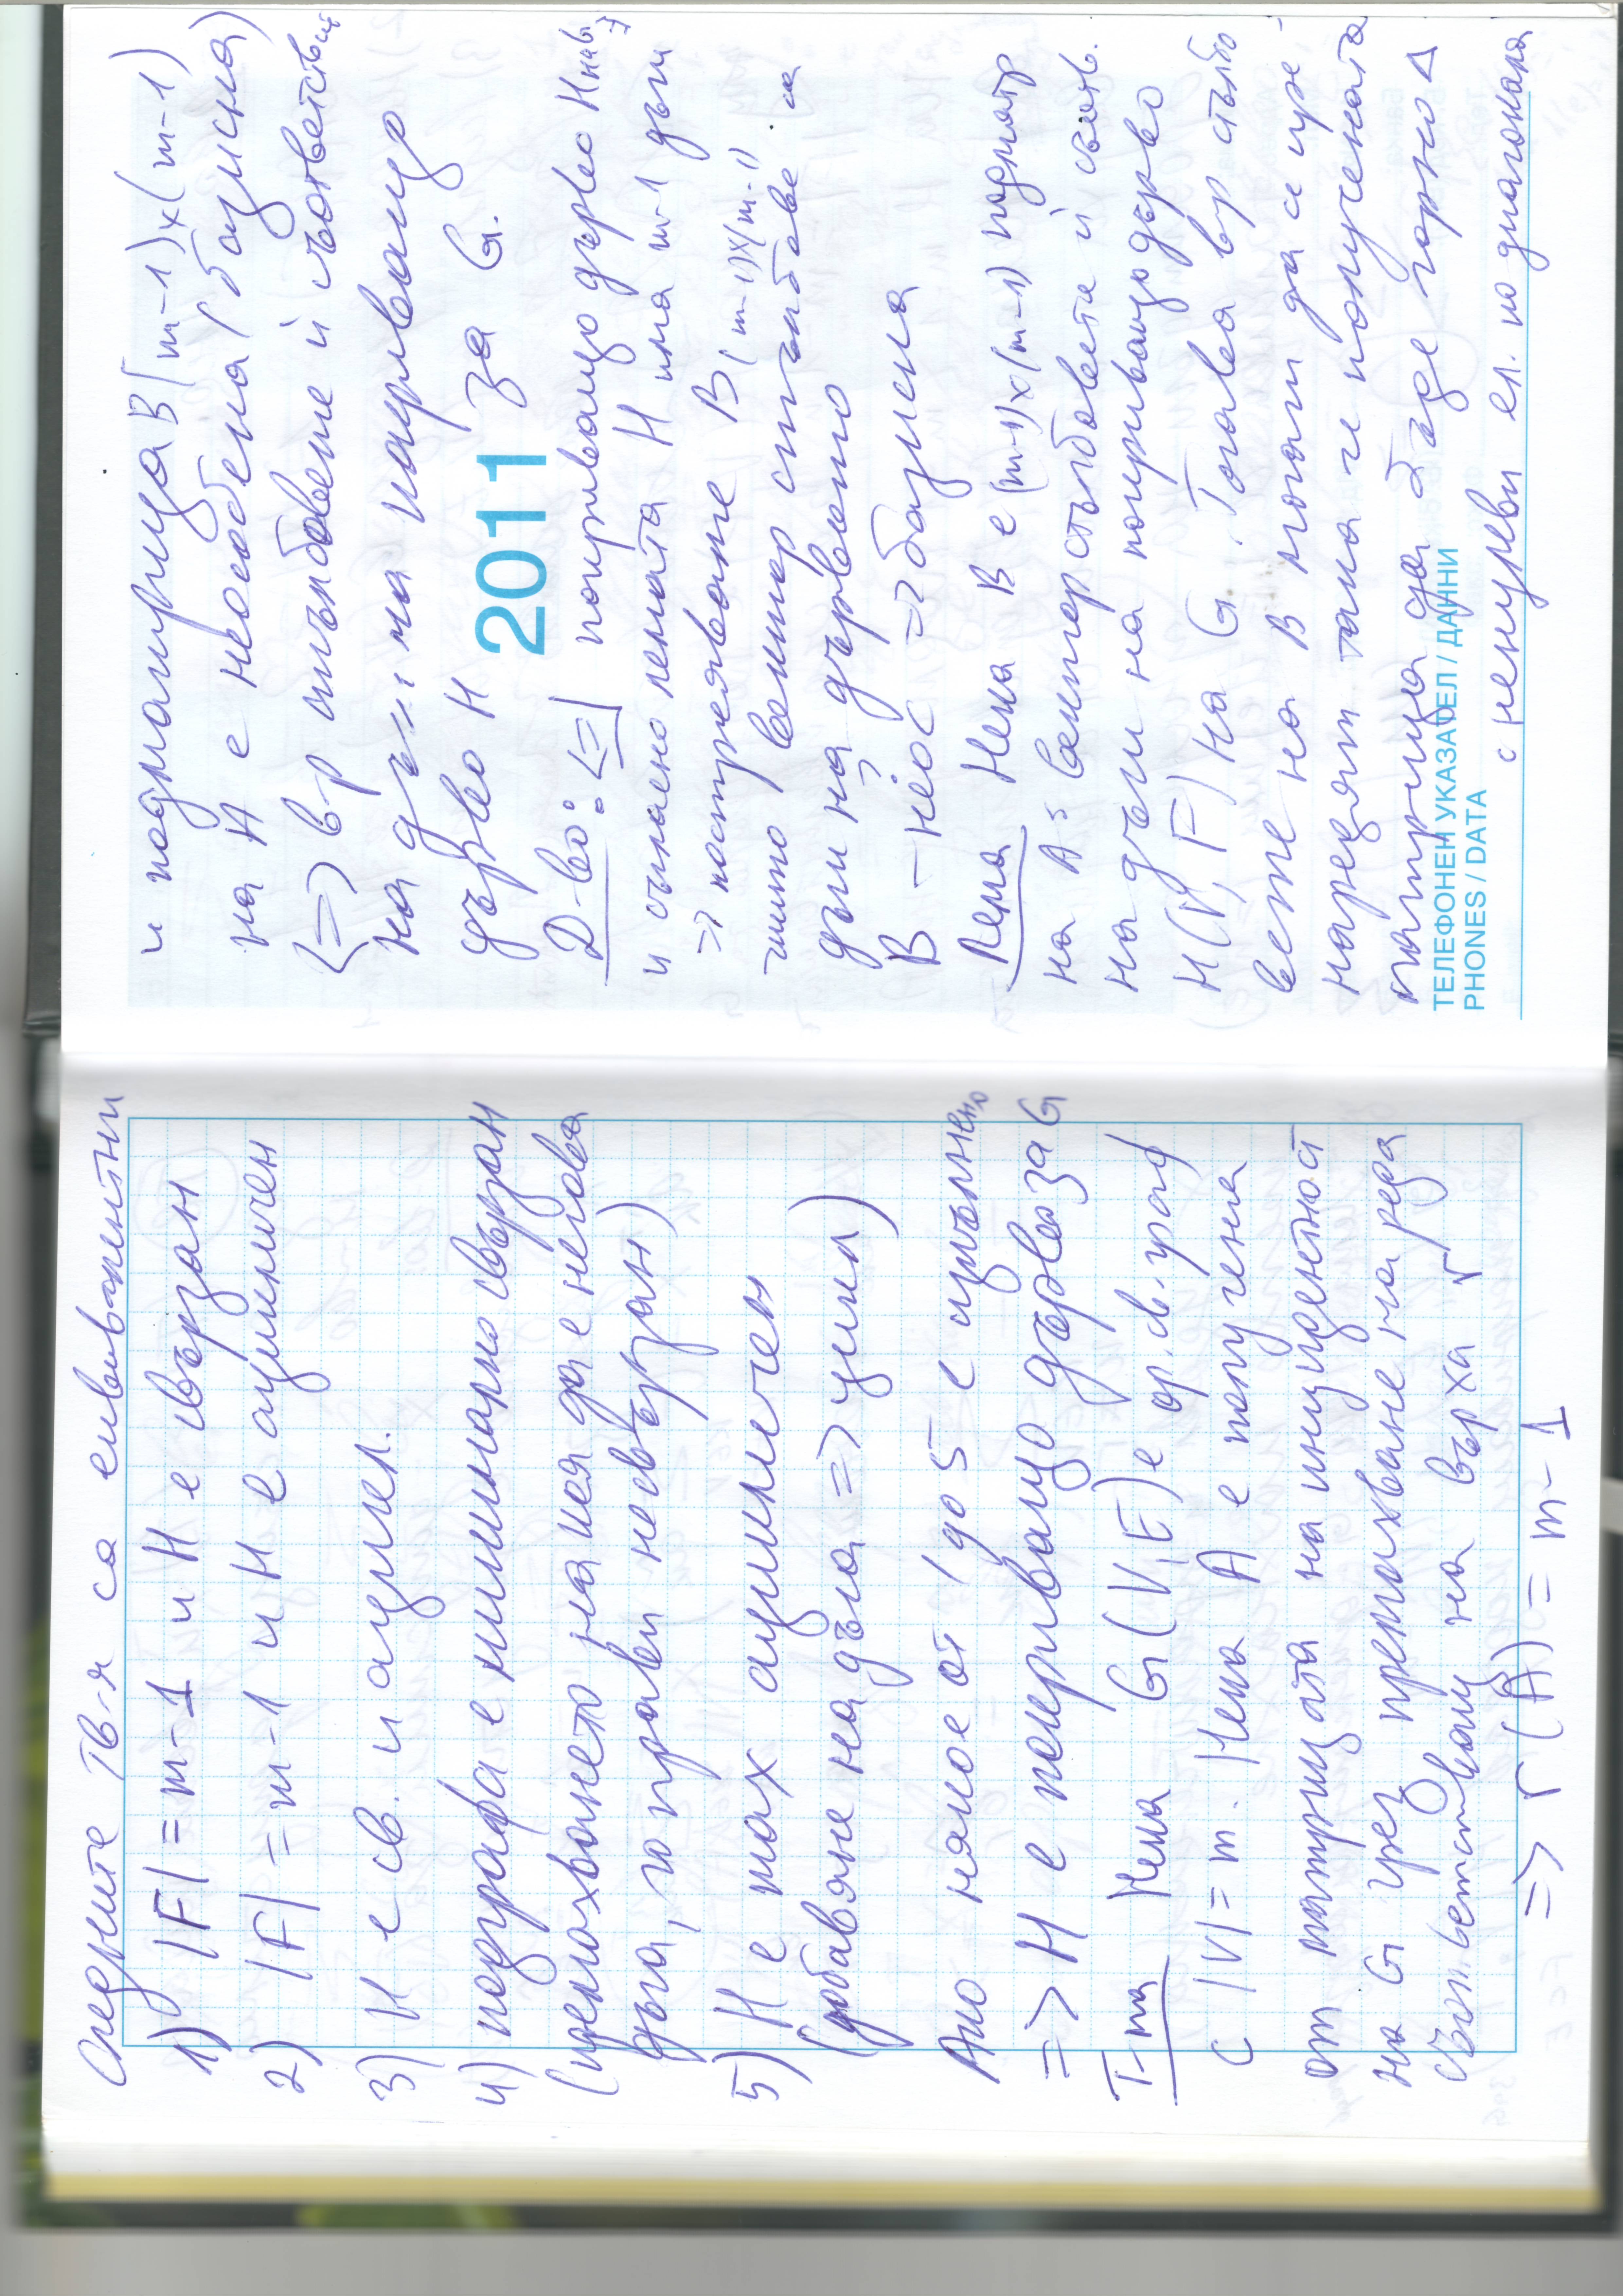 Следните тв-я са еквивалентни
1) |F| = m-1 и H е свързан
2) |F| = m-1 и H е ацикличен
3) H е св. и ацикл.
4) подграфа е минимално свързан
(премахването на коя да е негова
дъга, го прави несвързан)
5) H е max ацикличен
(добавяне на дъга => цикъл)
Ако някое от 1 до 5 е изпълнено
=> H е покриващо дърво за G
Т-ма Нека G(V,E) е ор. св. граф
с |V| = m. Нека A е получена
от матрицата на инцидентност
на G чрез премахване на реда
съответстващ на върха r
=> r(A) = m-1
и подматрица B (m-1)x(m-1)
на A е неособена (базисна)
<=> в р стълбовете ѝ съответстват
на дъги на покриващо
дърво H за G.
2011
Д-во: <=| покриващо дърво H
и съгласно лемата H има m-1 дъги
=> построяваме B (m-1)x(m-1)
чиито вектор стълбове са
дъги на дървото
B - неос => базисна
Лема Нека B е (m-1)x(m-1) подматр
на A с вектор стълбовете ѝ съотв.
на дъги на покриващо дърво
H(V,F) на G. Тогава вр стълбо-
вете на B могат да се пре-
наредят така че получената
матрица да бъде горно Δ
ТЕЛЕФОНЕН УКАЗАТЕЛ / ДАННИ
PHONES / DATA
с ненулеви ел. по диагонала